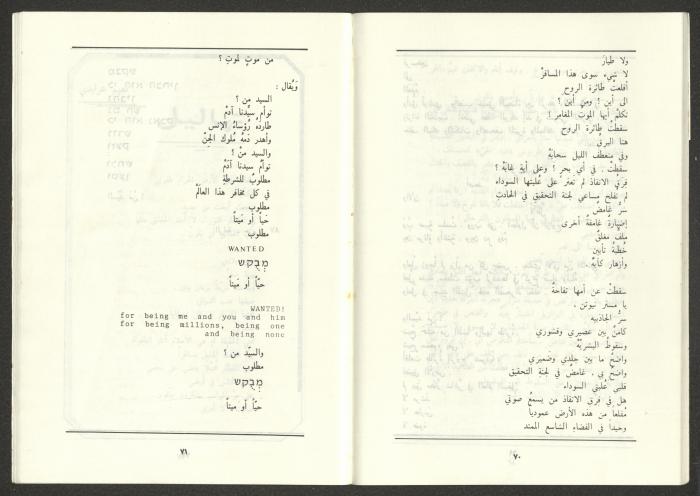 ولا طيارَ
لا شيء سوى هذا المسافرْ
أقلعت طائرة الروح
الى أين ! ومن أين !
تكلمْ أيها الموت المغامر !
سقطتْ طائرة الروح
هنا البرقُ
وفي منعطف الليل سحابهْ
سقطتْ . في أي بحرٍ ! وعلى أية غابهْ !
فرق الانقاذ لم تعثر على علبتها السوداء
لم تفلح مساعي لجنة التحقيق في الحادثِ
سرٌّ غامضٌ
إضبارة غامضةٌ أخرى
ملفٌ مغلقٌ
خطبةُ تأبين
وأزهار كآبهْ
سقطتْ عن أمها تفاحةٌ
يا مستر نيوتن .
سرُّ الجاذبيه
كامنٌ بين عصيري وقشوري
وسقوط البشريّهْ
واضحٌ ما بين جلدي وضميري
واضحٌ بي . غامضٌ في لجنة التحقيق
قلبي علبتي السوداء
هل في فرق الانقاذ من يسمعُ صوتي
مقلعاً من هذه الأرض عمودياً
وحيداً في الفضاء الشاسع الممتد
٧٠
من موتٍ لموتِ ؟
وَيُقال :
السيد من ؟
توأم سيّدنا آدمُ
طارده رُؤساءُ الإنس
وأهدر دَمَهُ مُلوك الجِنْ
والسيد منْ ؟
توأمُ سيّدنا آدَمْ
مطلوبٌ للشرطةِ
في كل مخافر هذا العالَمْ
مطلوب
حياً أو مَيتاً
مطلوب
WANTED
מְבֻקש
حيّاً أو مَيتاً
WANTED!
for being me and you and him
for being millions, being one
and being none
والسيّد من ؟
مطلوب
מְבֻקש
حيّاً أو ميتاً
٧١